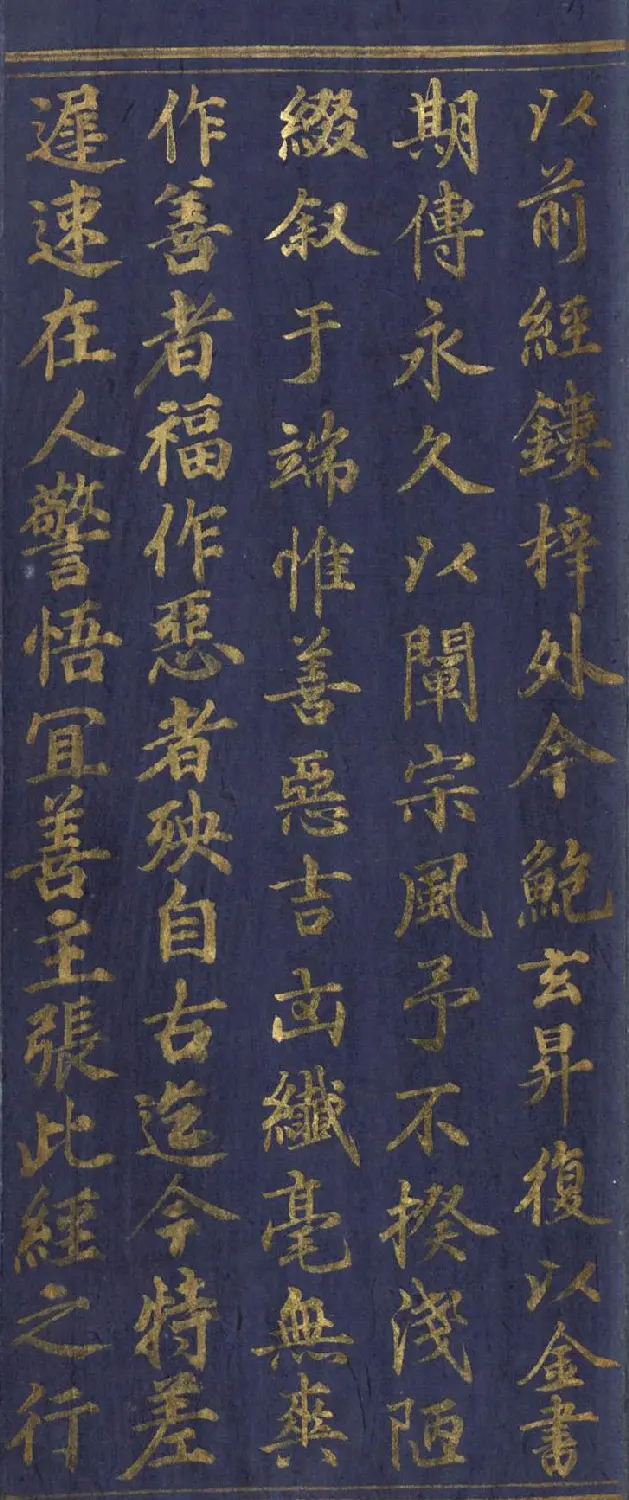 以前經鏤梓外今鮑玄昇復以金書
期傳永久以闡宗風予不揆淺陋
綴叙于端惟善惡吉凶纖毫無爽
作善者福作惡者殃自古迄今特差
遲速在人警悟冝善主張此經之行